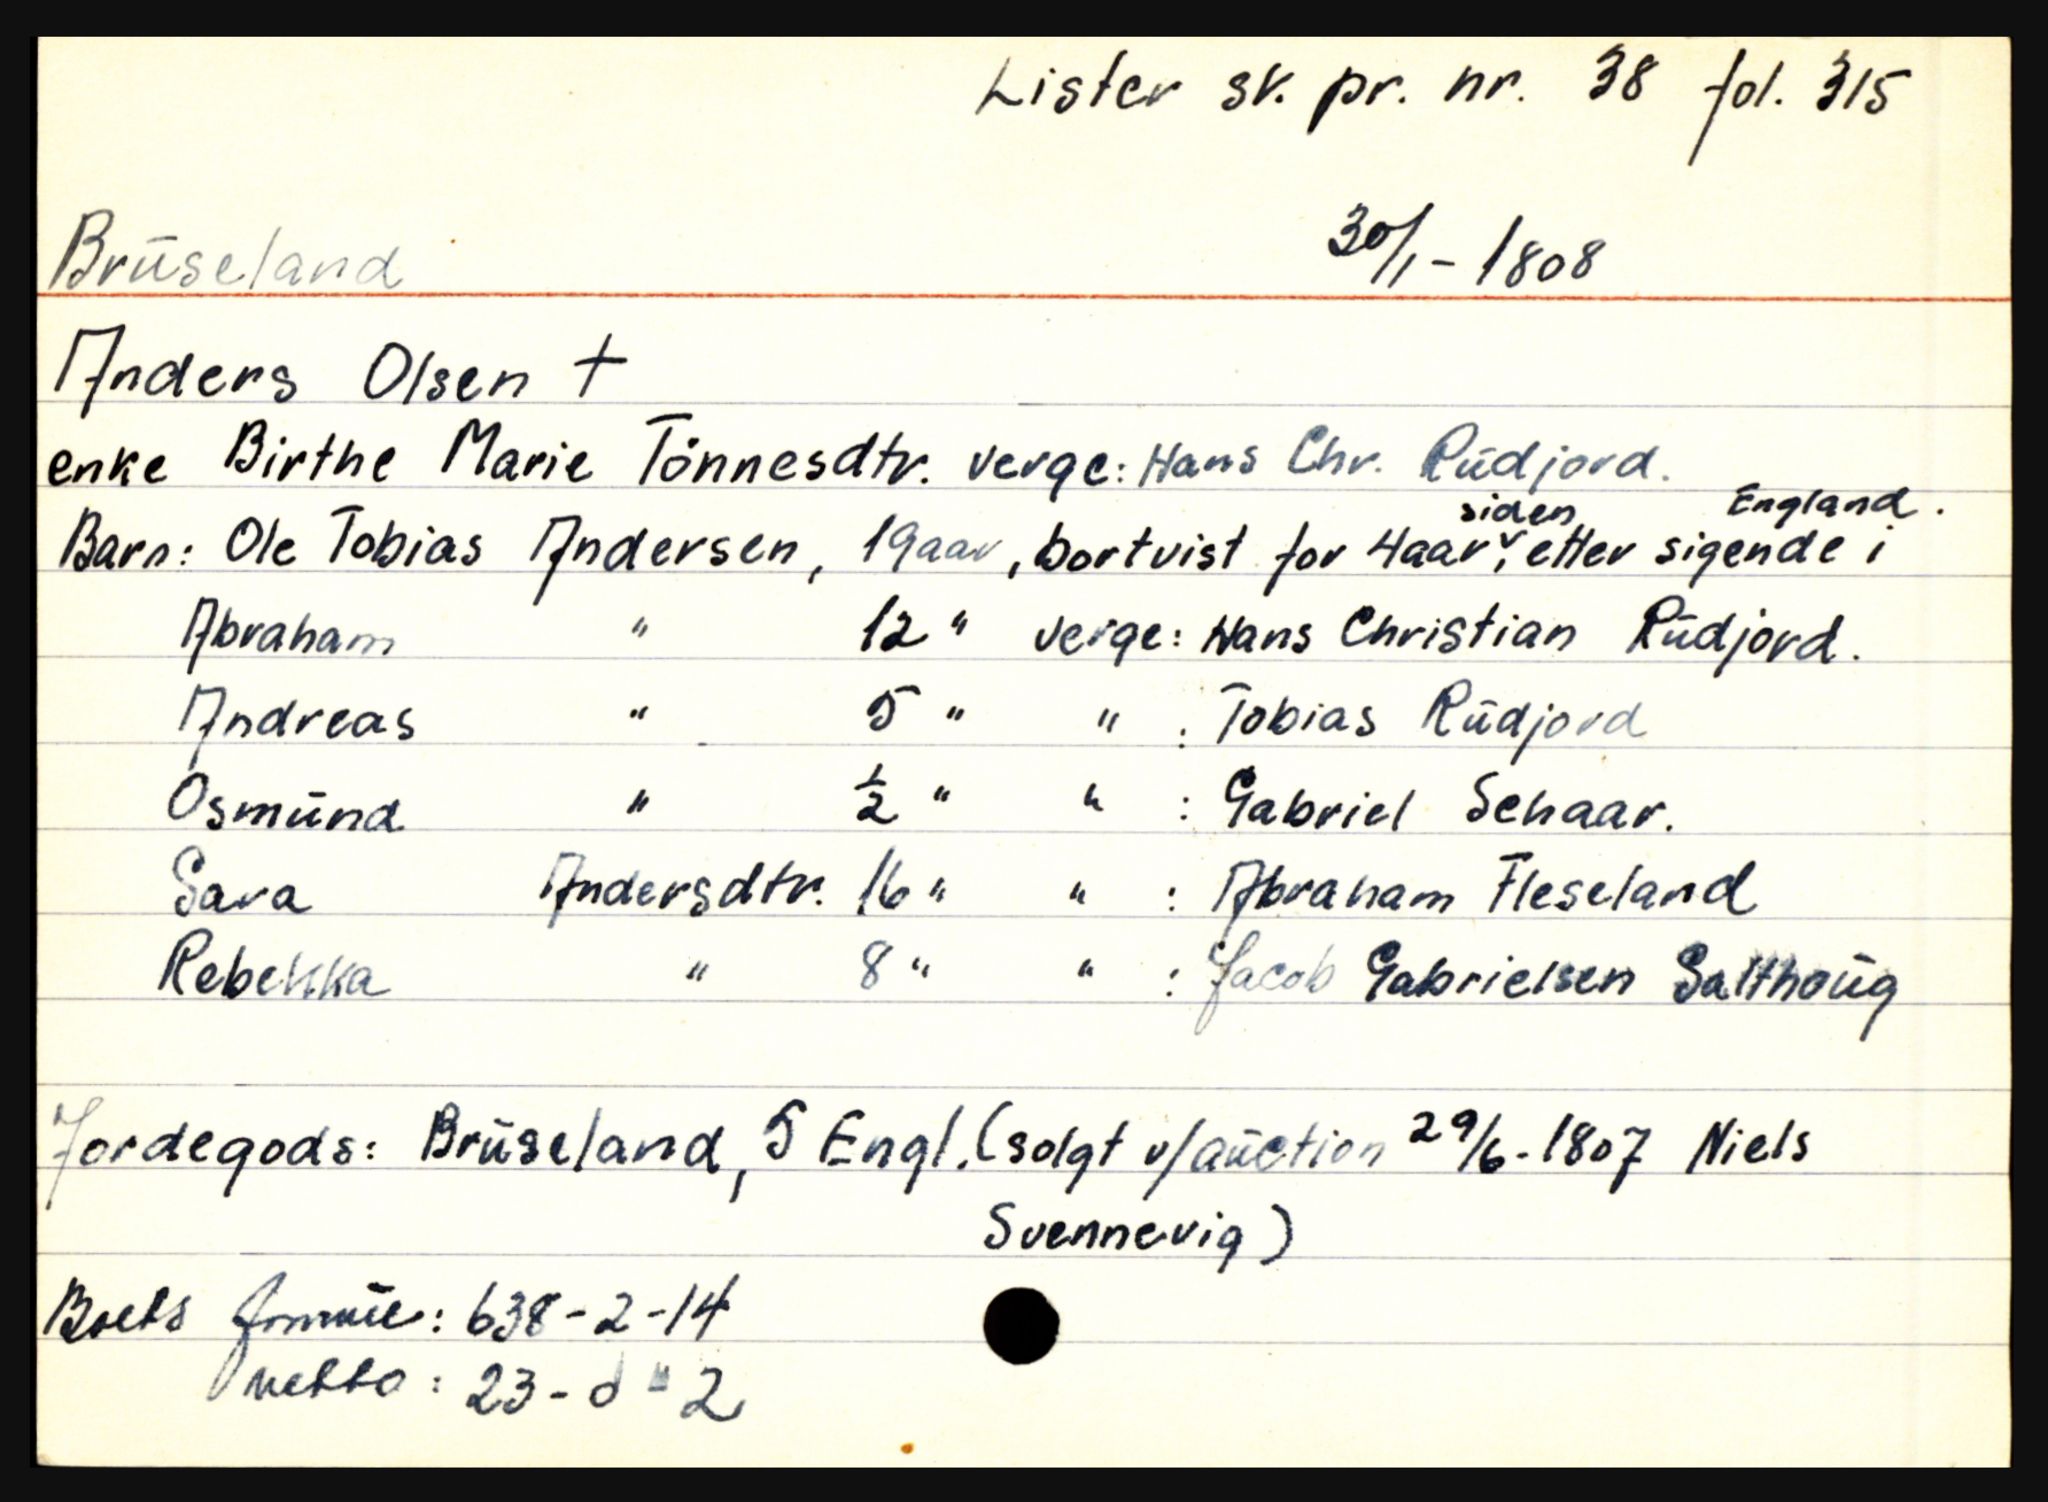 Lister sk. pr. nr. 38 fol. 315
Brüseland 30/1-1808
Anders Olsen †
enke Birthe Marie Tönnesdtr. verge: Hans Chr. Rüdjord.
siden England.
Barn: Ole Tobias Andersen, 19aar, bortvist for 4aar, etter sigende i
Abraham " 12 " verge: Hans Christian Rüdjord.
Andreas " 5 " " : Tobias Rüdjord
Osmünd " ½ " " : Gabriel Sehaar.
Sara Andersdtr. 16 " " : Abraham Fleseland
Rebekka " 8 " " : Jacob Gabrielsen Salthoüg
Jordegods: Brüseland, 5 Engl. (solgt v/aüction 29/6-1807 Niels
Svennevig)
Boets formüe: 638-2-14
netto: 23-0-2